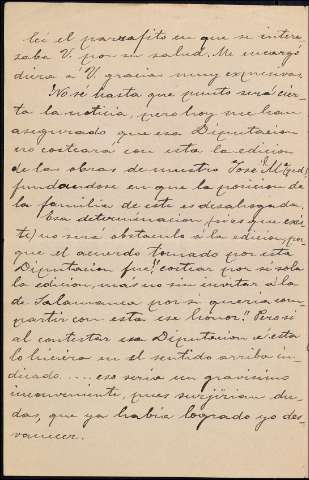 leí el parrafito en que se intere
saba V. por su salud. Me encargó
diera á V. gracias muy expresivas.
No sé hasta que punto será cier-
ta la noticia, pero hoy me han
asegurado que esa Diputacion
no costeará con esta la edicion
de las obras de nuestro José Mª
fundandose en que la posicion de
la familia de este es desahogada.
Esa determinacion (si es que exis
te) no será obstaculo á la edicion, por
que el acuerdo tomado por esta
Diputacion fue: "costear por si sola
la edicion, mas no sin invitar á la
de Salamanca por si queria com-
partir con esta ese honor." Pero si
al contestar esa Diputacion á esta
lo hiciera en el sentido arriba in-
dicado..... eso seria un gravisimo
inconveniente, pues surjirian du-
das, que ya habia logrado yo des-
vanecer.